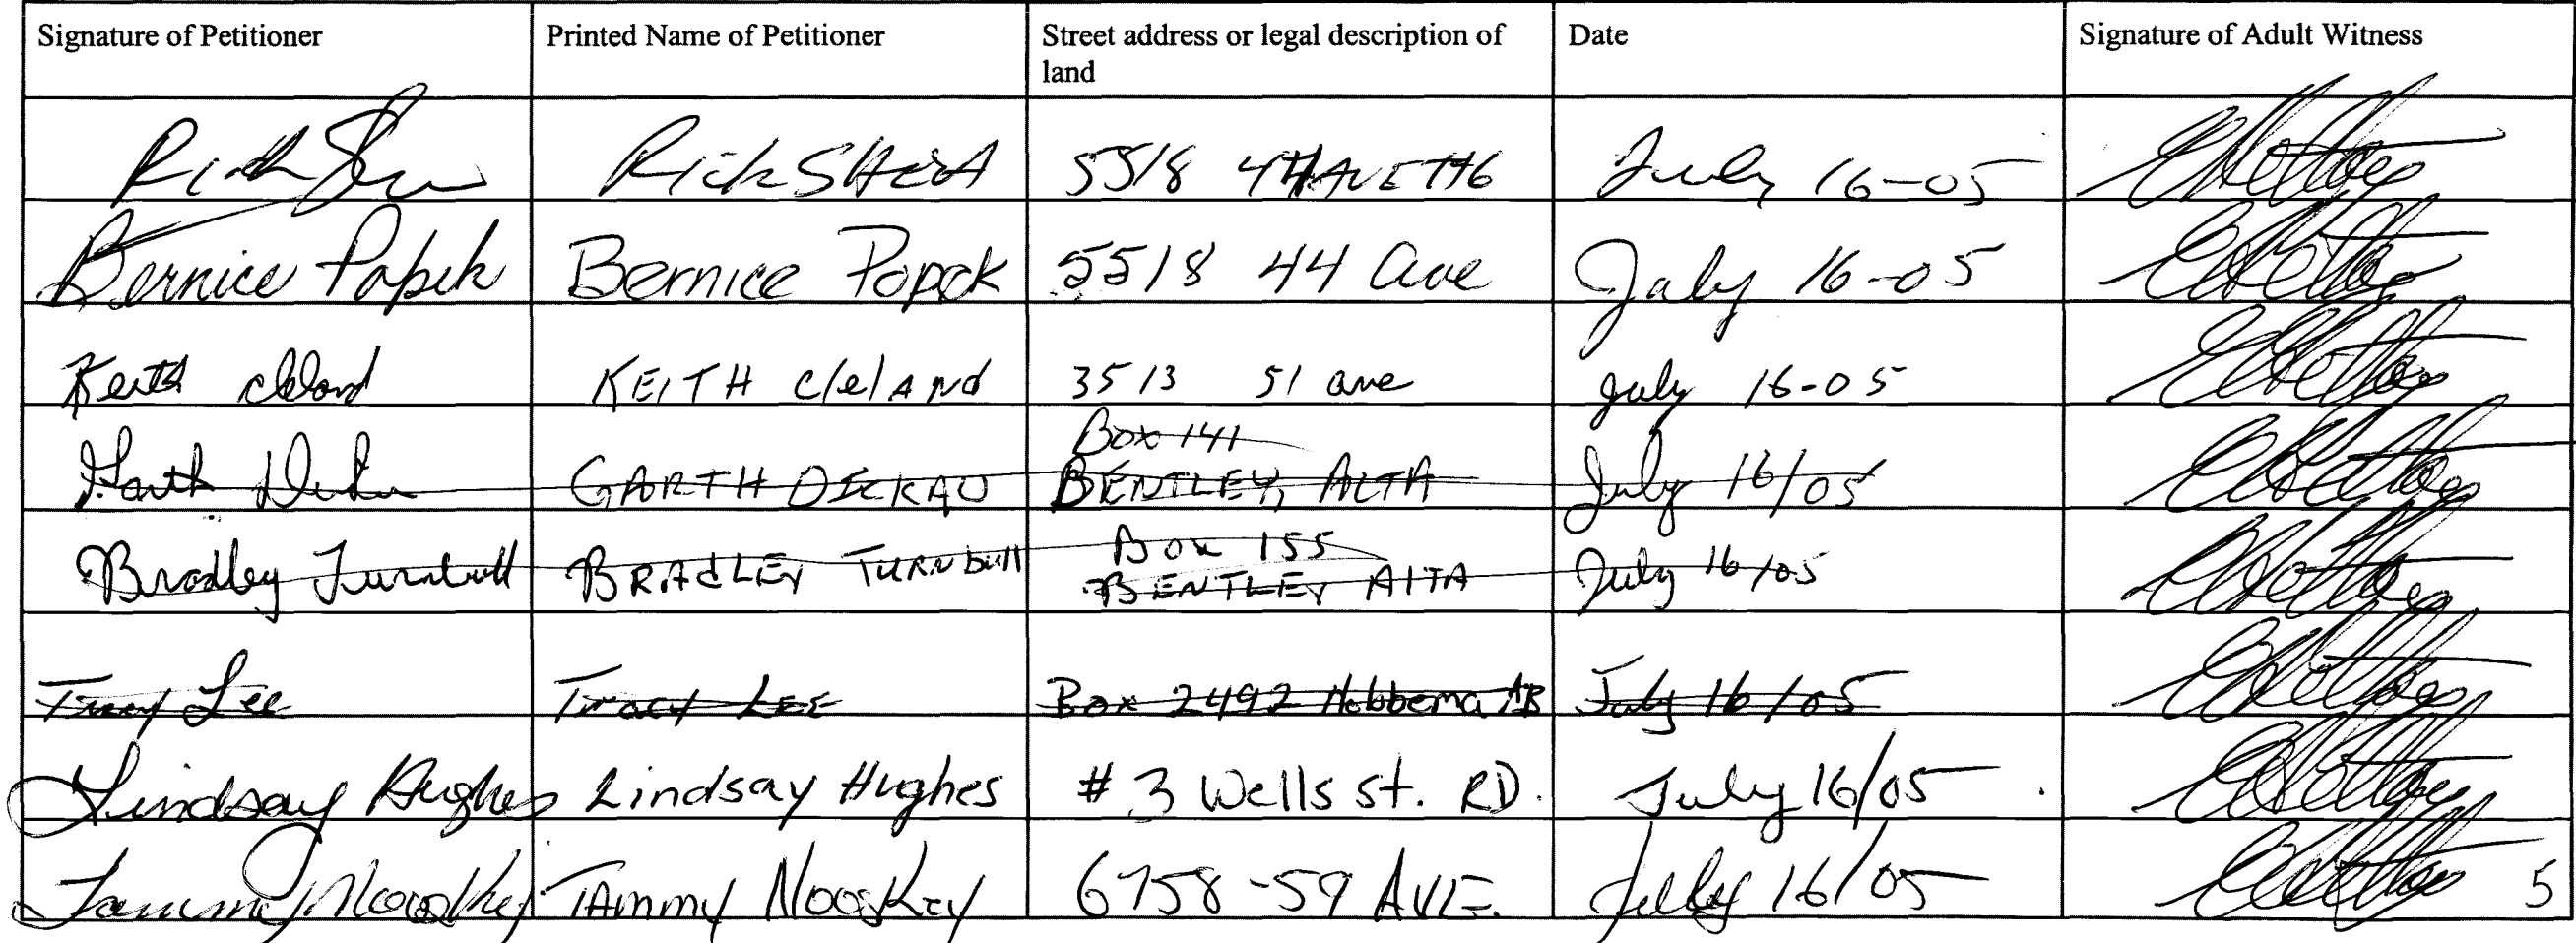 Signature of Petitioner Printed Name of Petitioner Street address or legal description of land Date Signature of Adult Witness
Rick Rick 5518 44 AVE July 16-05
Bernice Popek Bernice Popek 5518 44 ave July 16-05
Keith Cleland KEITH ClelANd 3513 51 ave July 16-05
Box 141
Garth GARTH DICKAU BENTLEY, ALTA July 16/05
Box 155
Bradley Turnbull BRAdLEY TURNbull BENTLEY AlTA July 16/05
Tracy Lee Tracy LEE Box 2492 Hobbema AB July 16/05
Lindsay Hughes Lindsay Hughes # 3 Wells st. RD. July 16/05
Tammy Nooskey TAmmy NoosKey 6758-59 AVE. July 16/05
5